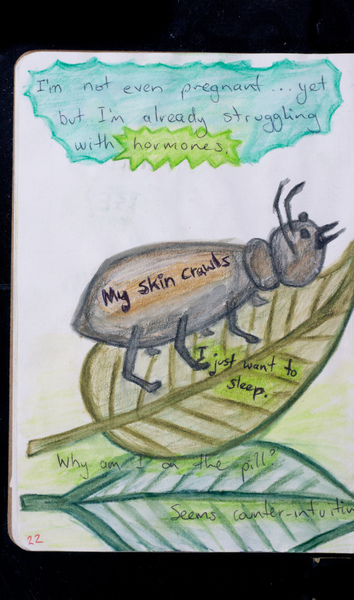 I'm not even pregnant... yet
but I'm already struggling
with hormones.
My skin crawls
I just want to
sleep.
Why am I on the pill?
Seems counter-intuitiv
22